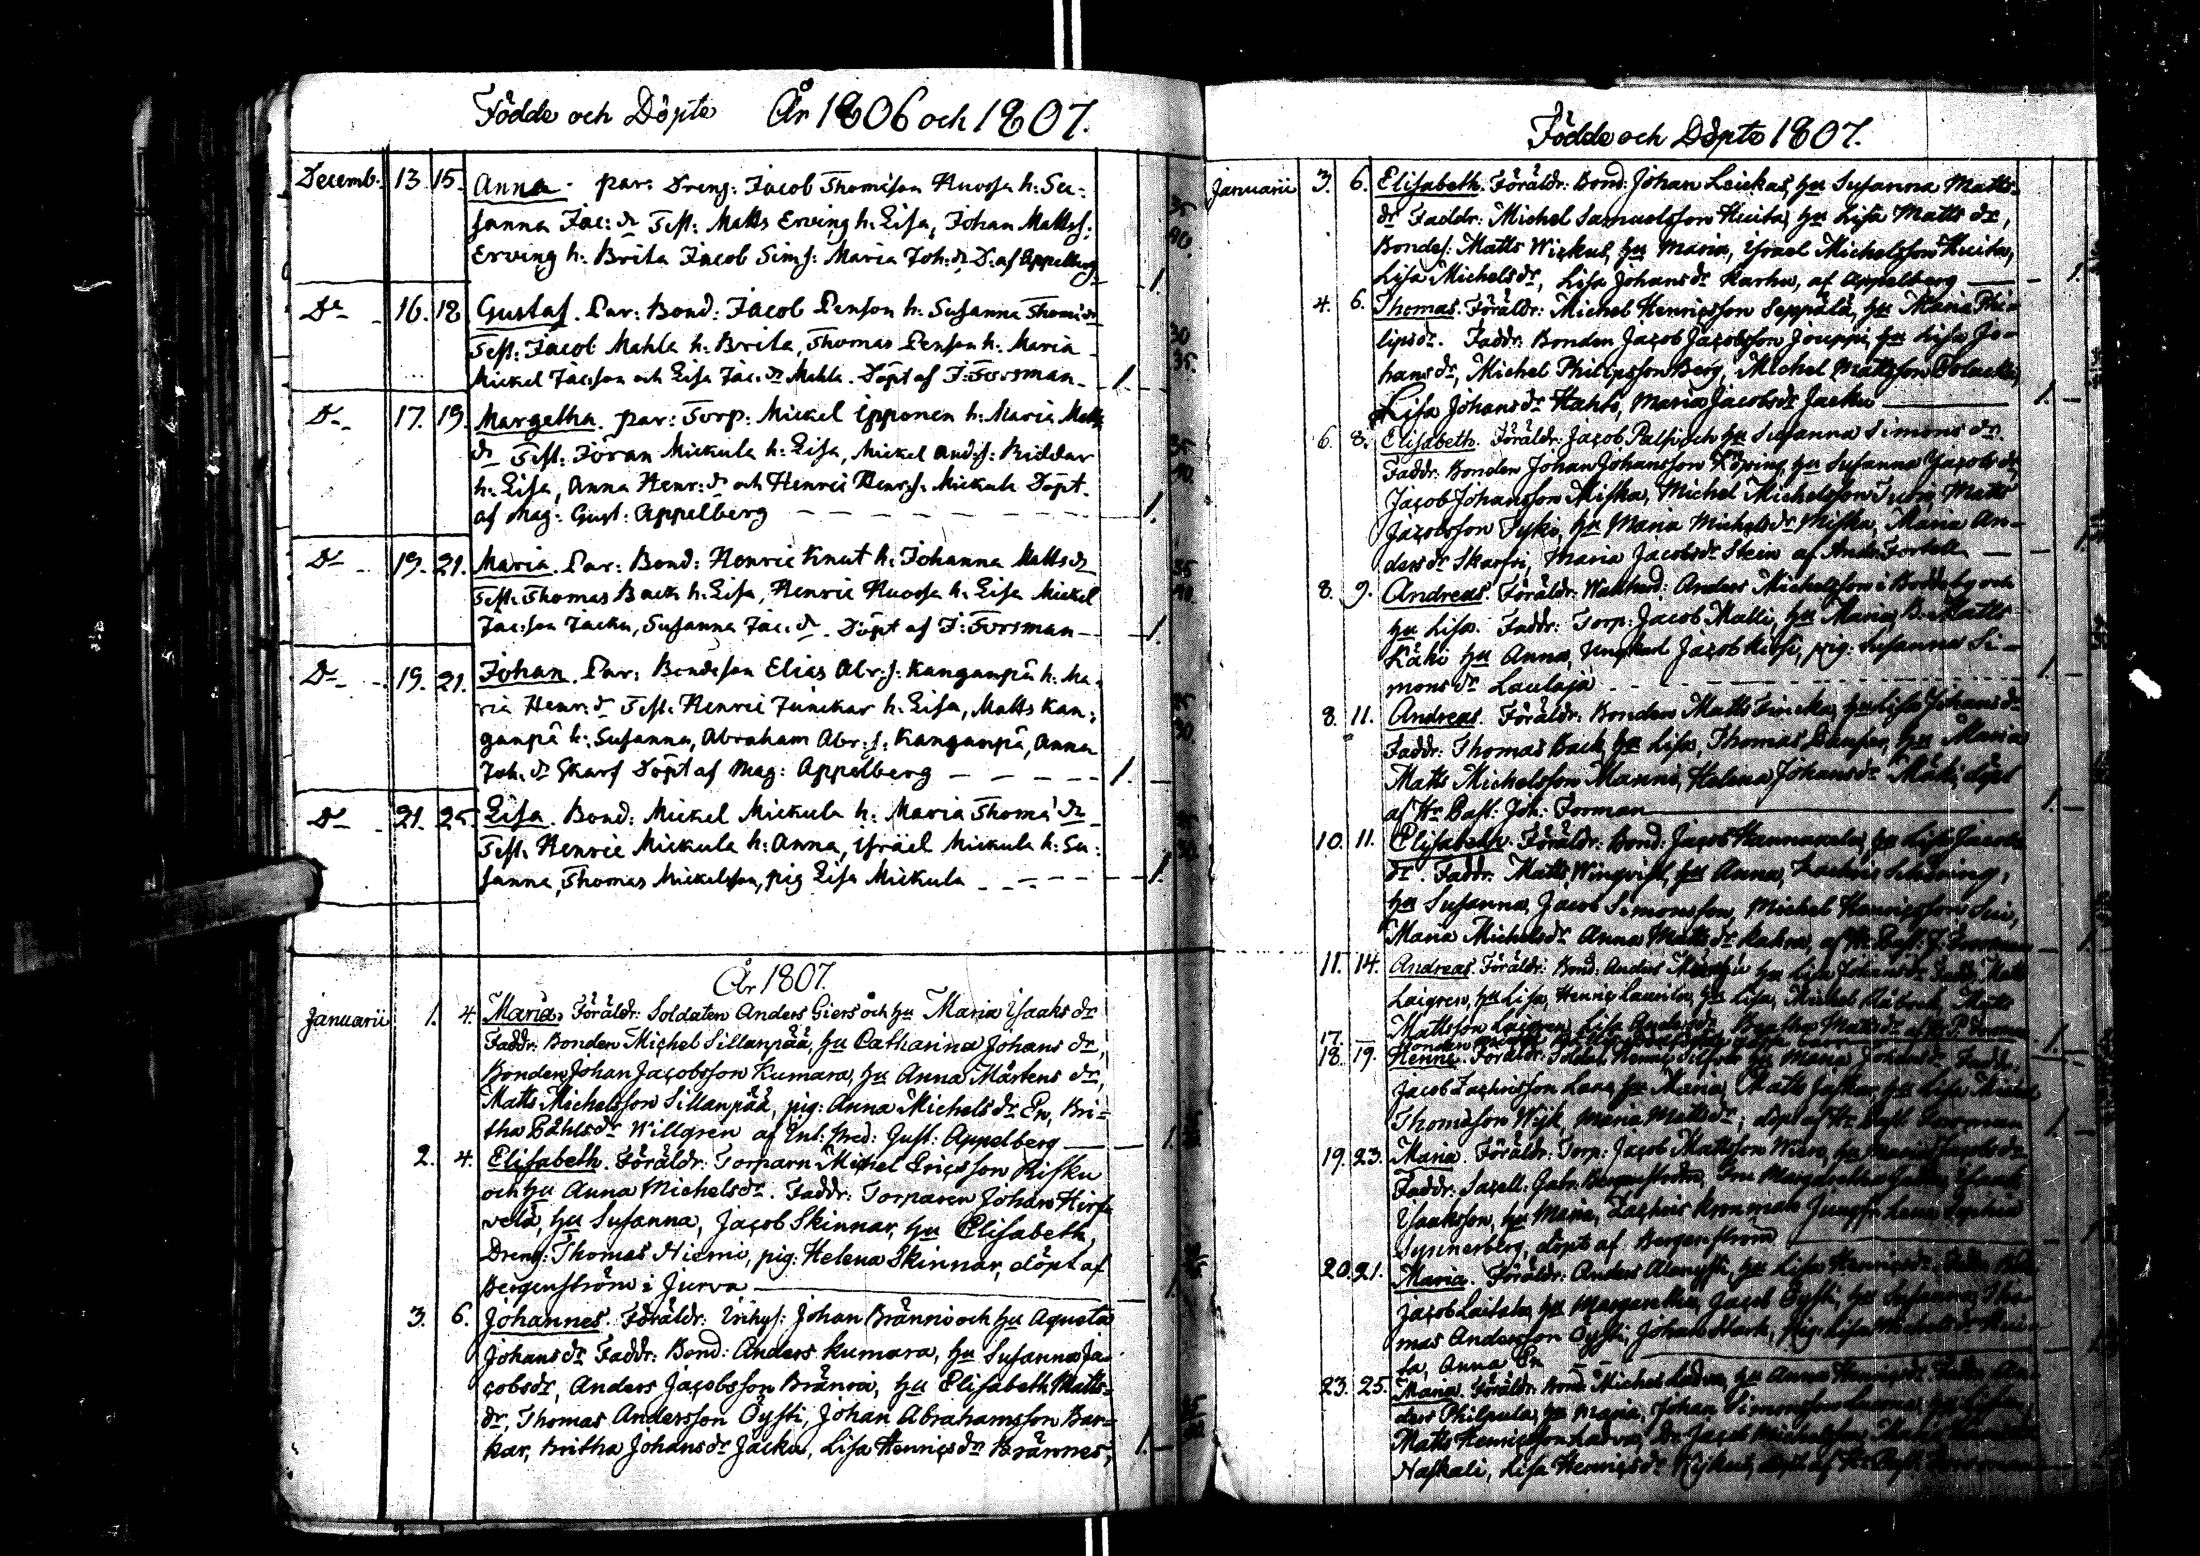 Födde och Döpte År 1806 och 1807.
Decemb: 13 15. Anna. par: Dreng: Jacob Thomison Huossa h: Su:
sanna Jac: dr Test: Matts Erving h: Lisa, Johan Mattss:
Erving h: Brita Jacob Sims: Maria Joh: dr D: af Appelberg 1.
Do 16. 18 Gustaf. Par: Bond: Jacob Penson h: Susanna Thom: dr
Test: Jacob Mahla h: Brita, Thomas Penson h: Maria
Mickel Jacsson och Lisa Jac: dr Mahla. Döpt af J: Forsman 1.
Do 17. 19. Margetha. par: Torp: Mickel Ipponen h: Maria Matts
dr Test: Jöran Mickula h: Lisa, Mickel And:s: Riddar
h: Lisa, Anna Henr: dr och Henric Henr:s: Mickula Döpt.
af Mag: Gust: Appelberg 1.
Do 19. 21. Maria. Par: Bond: Henric Knut h: Johanna Matts dr
Test: Thomas Back h: Lisa, Henric Huossa h: Lisa Mickel
Jacsson Jacku, Susanna Jac: dr. Döpt af J: Forsman 1.
Do 19. 21. Johan. Par: Bondeson Elias Abr:s: Kanganpä h: Ma-
ria Henr: dr Test: Henric Junickar h: Lisa, Matts Kan:
ganpä h: Susanna, Abraham Abr:s: Kanganpä, Anna
Joh: dr Skarf Döpt af Mag: Appelberg 1.
Do 21. 25. Lisa. Bond: Mickel Mickula h: Maria Thomæ dr
Test: Henric Mickula h: Anna, Israel Mickula h: Su:
sanna, Thomas Mickelsson, pig Lisa Mickula 1.
År 1807.
Januarii 1. 4. Maria. Föräldr: Soldaten Anders Giers och hu Maria Isaaks dr
Faddr: Bonden Michel Sillanpää, hu Catharina Johans dr,
Bonden Johan Jacobsson Kumara, hu Anna Mårtens dr,
Matts Michelsson Sillanpää, pig: Anna Michels dr En, Bri-
tha Påhls dr Willgren af Ent: Pred: Just: Appelberg 1.
2. 4. Elisabeth. Föräldr: Torparn Michel Ericsson Risku
och hu Anna Michels dr. Faddr: Torparen Johan Hirs
velä, hu Susanna, Jacob Skinnar, hu Elisabeth,
Dreng: Thomas Niemi, pig: Helena Skinnar, döpt af
Bergenström i Jurva 1.
3. 6. Johannes. Föräldr: Inhys: Johan Bränni och hu Agneta
Johans dr Faddr: Bond: Anders Kumara, hu Susanna Ja-
cobs dr, Anders Jacobsson Bränni, hu Elisabeth Matts-
dr, Thomas Andersson Öysti, Johan Abrahamsson Bar-
kar, Britha Johans dr Jacku, Lisa Henrics dr Brännes, 1.
Födde och Döpte 1807.
Januarii 3. 6. Elisabeth. Föräldr: Bond: Johan Leickas, hu Susanna Matts-
dr Faddr: Michel Samuelsson Kuita, hu Lisa Matts dr,
Bondes: Matts Wickul, hu Maria, Israel Michelsson Kuita,
Lisa Michels dr, Lisa Johans dr Karhu, af Appelberg 1.
4. 6. Thomas. Föräldr: Michel Henricsson Seppälä, hu Maria Phi-
lips dr. Faddr: Bonden Jacob Jacobsson Jouppi, hu Lisa Jo-
hans dr, Michel Philipsson Berg, Michel Mattsson
Lisa Johans dr Hahto, Maria Jacobs dr Jacku 1.
6. 8. Elisabeth. Föräldr: Jacob Palsi och hu Susanna Simons dr.
Faddr: Bonden Johan Johansson Köping, hu Susanna Jacobs dr
Jacob Johansson Miska, Michel Michelsson Matts
Jacobsson hu Maria Michels dr Miska, Maria An-
ders dr Skarfri, Maria Jacobs dr Stein af And: Fortell
8. 9. Andreas. Föräldr: Anders Michelsson i Boddeby och
hu Lisa. Faddr: Torp: Jacob Malli, hu Maria, B: Matts
Käki hu Anna, Ungkarl Jacob pig: Susanna Si-
mons dr Laulaja 1.
8. 11. Andreas. Föräldr: Bonden Matts hu Lisa Johans dr
Faddr: Thomas Back, hu Lisa, Thomas hu Maria
Matts Michelsson Manni, Helena Johans dr Mäki, döpt
af Hr Past: Joh: Forman 1.
10. 11. Elisabeth. Föräldr: Bond: Jacob Hannuxela, hu Lisa Jacobs
dr. Faddr: Matts Winqvist, hu Anna, Zachris
hu Susanna, Jacob Simonsson, Michel Henricsson
Maria Michels dr Anna Matts dr af Hr Past: J: Forsman 1.
11. 14. Andreas. Föräldr: Bond: Anders hu Lisa Johans dr Faddr: Matts
Laigren, hu Lisa, Henric Laurila, hu Lisa, Michel Matts
Mattsson Laigren, Lisa Anders dr Beatha Matts dr 1.
17.
18. 19. Henric. Föräldr: Soldat: hu Maria Johans dr Faddr:
Jacob Zachrisson hu Maria, Matts hu Lisa Michel
Thomasson Wijk, Maria Matts dr, döpt af Hr Past: Forsman 1.
19. 23. Maria. Föräldr: Torp: Jacob Mattsson hu Maria Jacobs dr
Faddr: Sacell: Gabr: Bergenström, Fru Margaretha Isaak
Isaaksson, hu Maria, Zachris Kronman Jungfr: Lena Sophia
Synnerberg, döpt af Bergenström 1
20. 21. Maria. Föräldr: Anders hu Lisa Henrics dr Faddr:
Jacob Laitala, hu Margaretha, Jacob Öysti, hu Susanna, Tho-
mas Andersson Öysti, Johan Stark, pig: Lisa Michels dr
Anna En
23. 25. Maria. Föräldr: Bond: Michel hu Anna Henrics dr Faddr: An-
ders Philpula, hu Maria, Johan Simonsson
Matts Henricsson
Naskali, Lisa Henrics dr döpt af Hr Past: Forsman